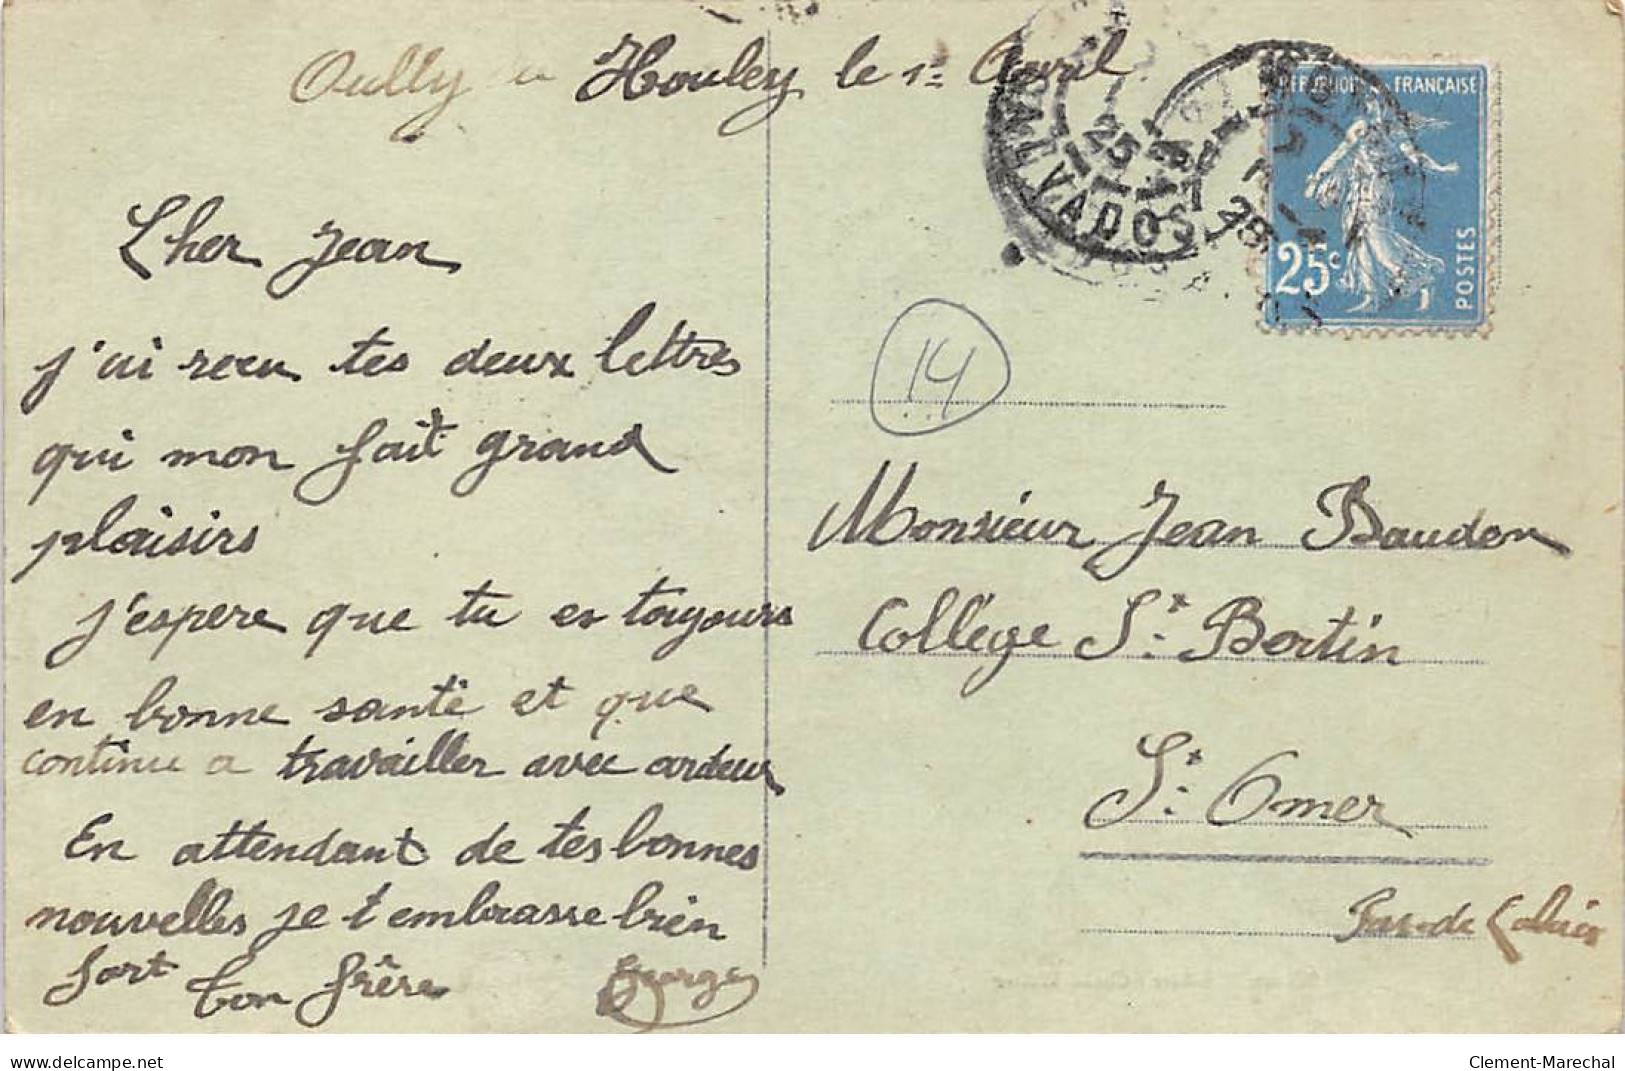 Oully le Houley le 1er Avril
Cher Jean
j'ai recu tes deux lettres
qui mon fait grand
plaisirs
j'espere que tu es toujours
en bonne santé et que
continue a travailler avec ardeur
En attendant de tes bonnes
nouvelles je t'embrasse bien
fort ton frère Georges
CALVADOS
25
RÉPUBLIQUE FRANÇAISE
25c
POSTES
14
Monsieur Jean Baudon
Collège St Bertin
St Omer
Pas-de Calais
delcampe.net
Clement-Marechal